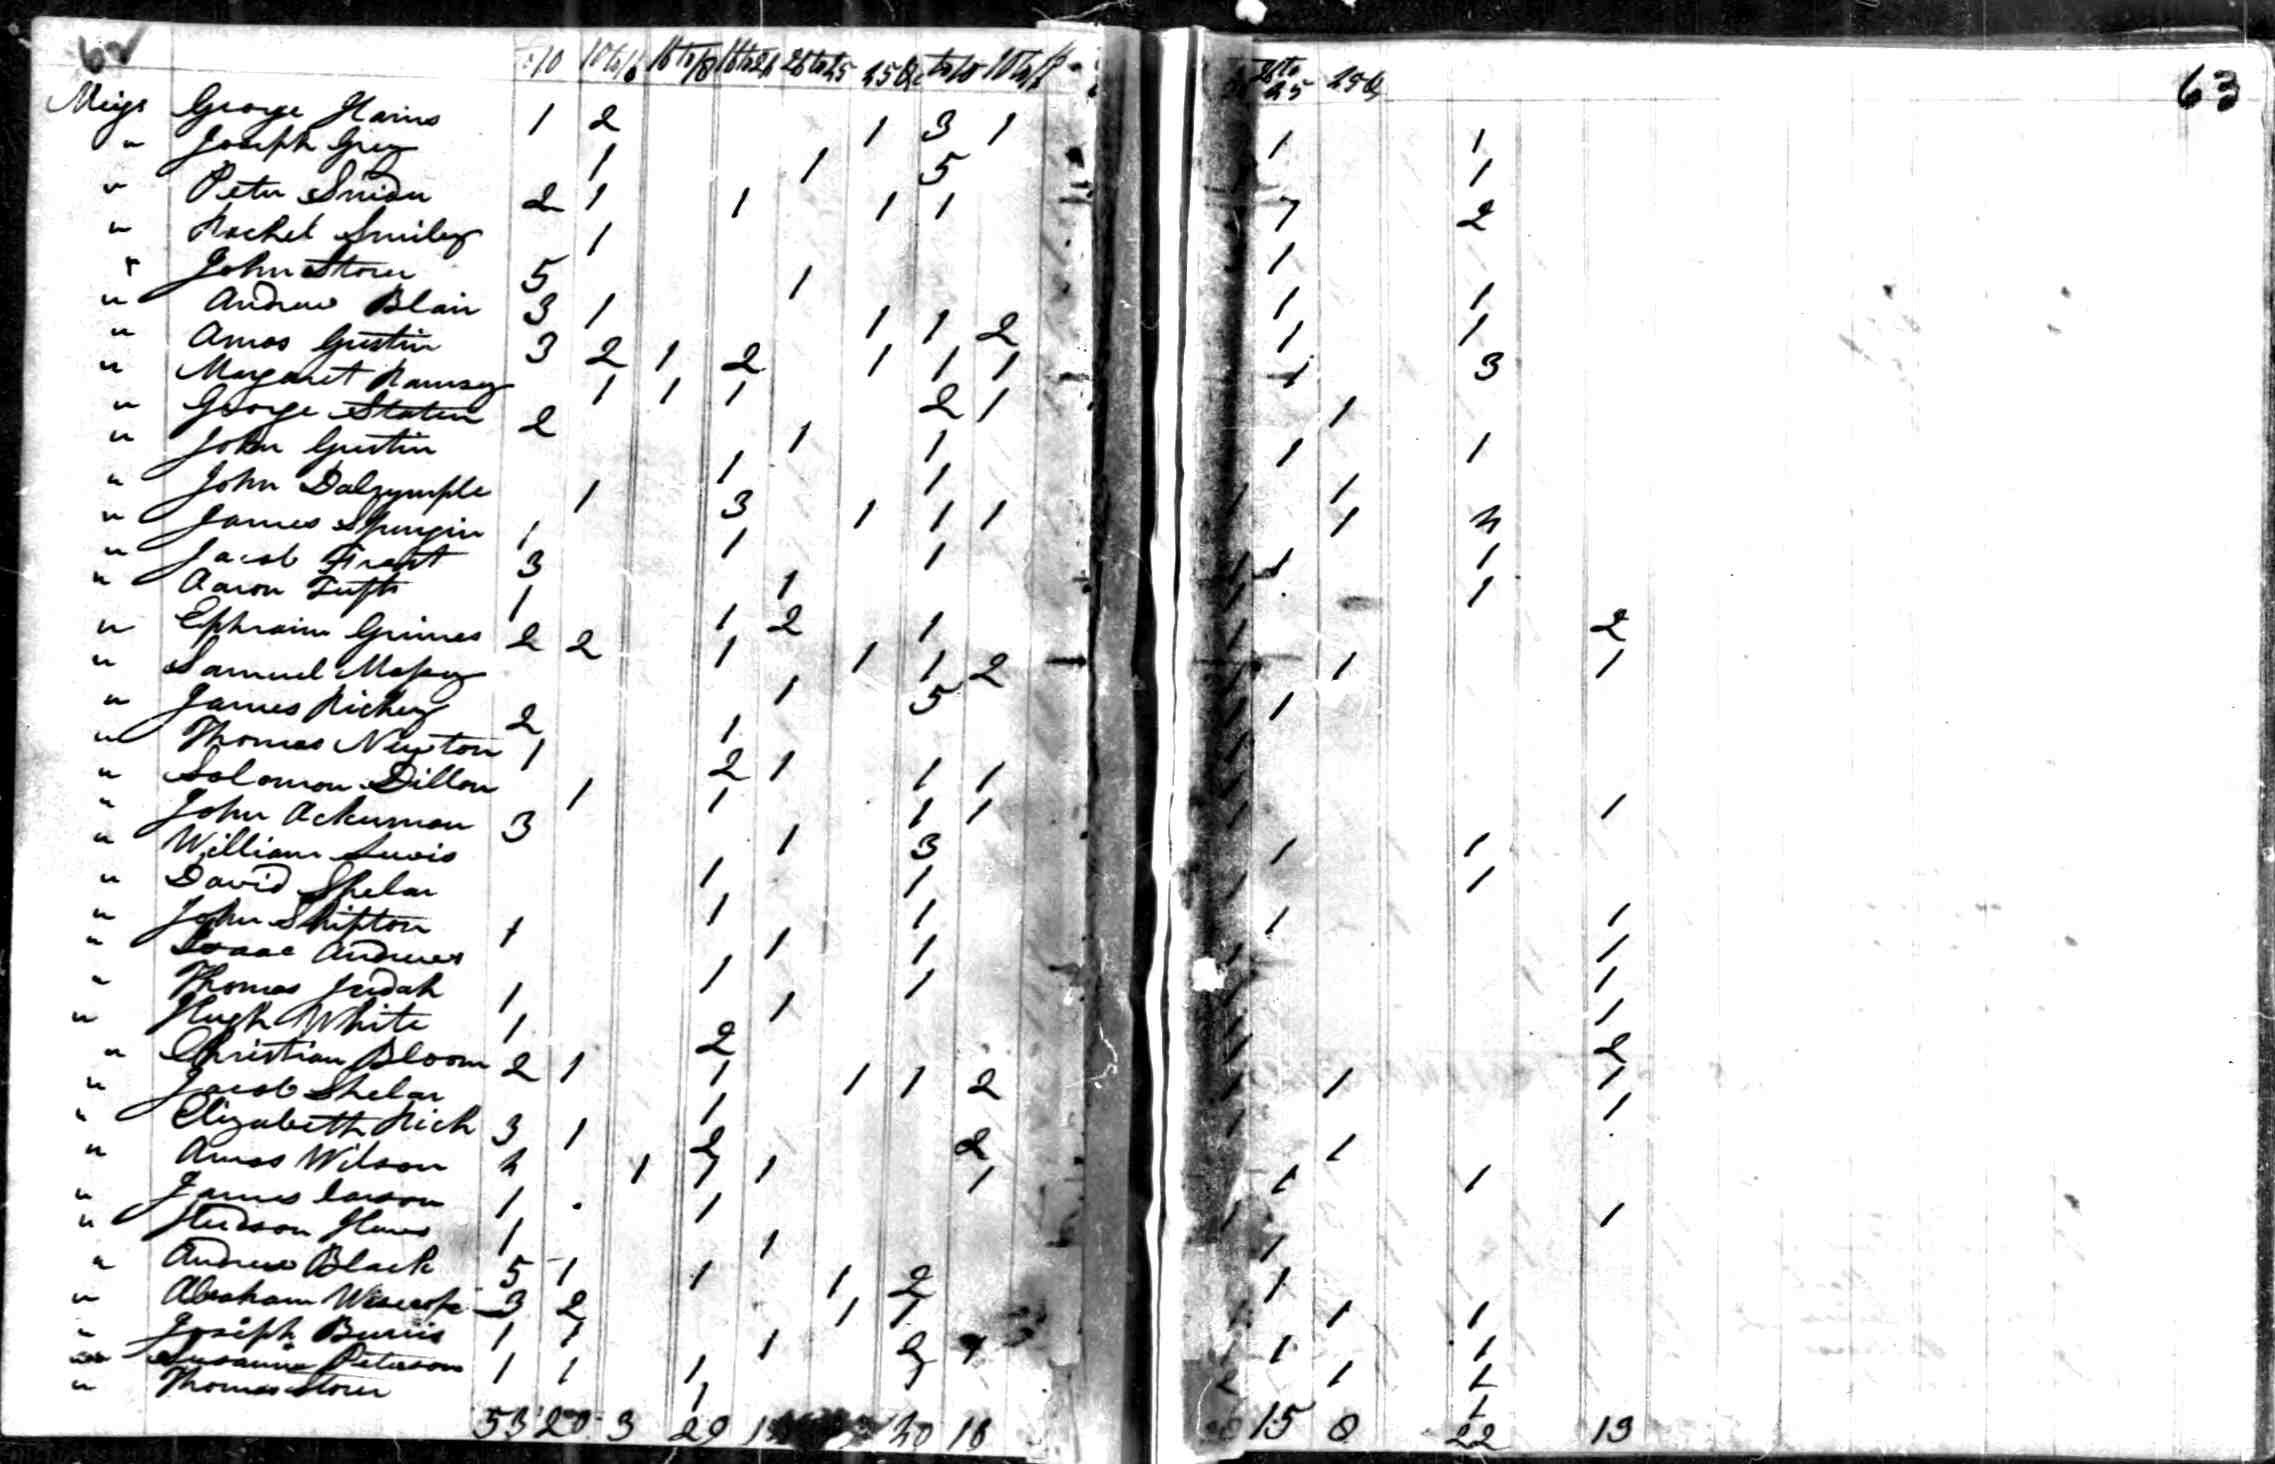 62 to 10 10 to 16 16 to 18 16 to 26 26 to 45 45 &c to 10 10 to 16 26 to 45 45 & 63
Meigs George Hains 1 2 1 3 1 1 1
" Joseph Grey 1 1 5 1
" Peter Snider 2 1 1 1 1 1 2
" Rachel Smiley 1 1
" John Storer 5 1 1 1
" Andrew Blair 3 1 1 1 2 1 1
" Amos Gustin 3 2 1 2 1 1 1 1 3
" Margaret Ramsey 1 1 1 2 1 1
" George Staten 2 1 1 1 1
" John Gustin 1 1 1
" John Dalrymple 1 3 1 1 1 1 4
" James Spurgin 1 1 1 1 1
" Jacob Frant 3 1 1 1
" Aaron Tufts 1 1 2 1 2
" Ephraim Grimes 2 2 1 1 1 2 1 1
" Samuel Massey 1 5 1
" James Richey 2 1
" Thomas Newton 1 2 1 1 1
" Solomon Dillon 1 1 1 1 1
" John Ackerman 3 1 3 1 1
" William Lewis 1 1 1
" David Shelar 1 1 1 1
" John Shipton 1 1 1 1
" Isaac Andrews 1 1 1
" Thomas Judah 1 1 1
" Hugh White 1 2 2
" Christian Bloom 2 1 1 1 1 2 1 1
" Jacob Shelar 1 1
" Elizabeth Rich 3 1 2 2 1
" Amos Wilson 4 1 1 1 1 1 1
" James Carson 1 1 1
" Hudson Hews 1 1 1
" Andrew Black 5 1 1 1 2 1
" Abraham 3 2 1 1 1 1
" Joseph Burris 1 1 1 2 1 1 1
" Susanna Peterson 1 1 1 1 1 1
" Thomas Storer 1 1
53 20 3 29 40 18 15 8 22 13